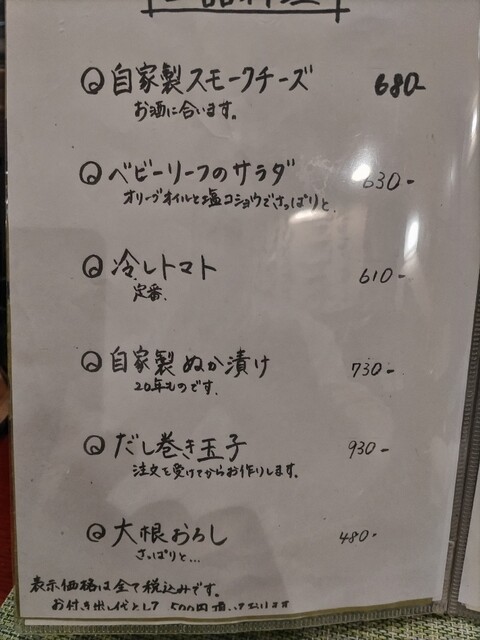 一品料理
自家製スモークチーズ 680-
お酒に合います。
ベビーリーフのサラダ 630-
オリーブオイルと塩コショウでさっぱりと.
冷しトマト 610-
定番.
自家製ぬか漬け 730-
20年ものです.
だし巻き玉子 930-
注文を受けてからお作りします。
大根おろし 480-
さっぱりと...
表示価格は全て税込みです。
お付き出し代として500円頂いております